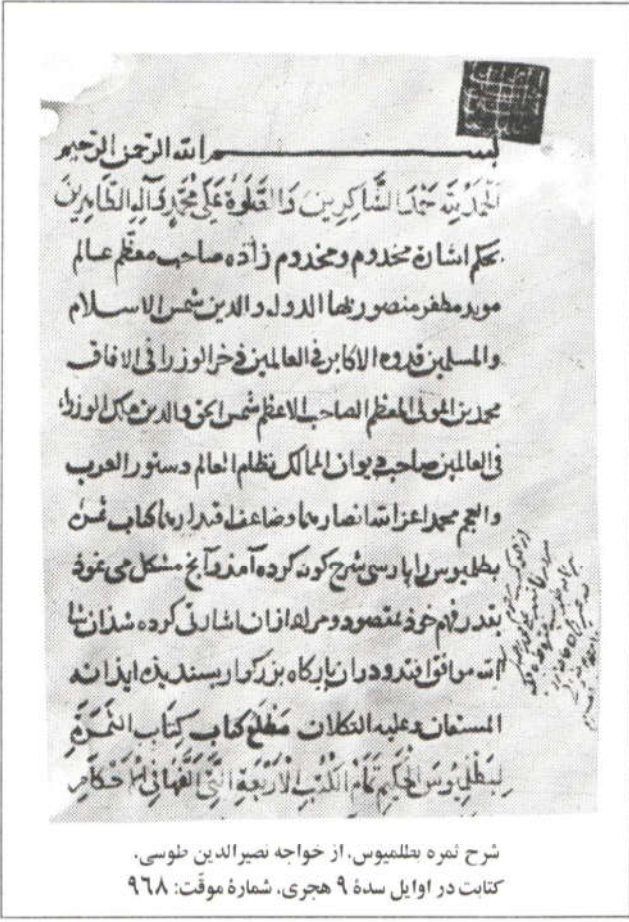 بسم الله الرحمن الرحیم
اَلحَمدُ لِلّهِ حَمدَ الشَّاکِرِین وَ الصَّلَوةُ عَلی مُحَمَّدٍ وَآلِهِ الطَّاهِرِینَ
بحکم اشارت مخدوم و مخدوم زاده صاحب معظم عالم
موید مظفر منصور بها الدوله والدین شمس الاسلام
والمسلمین قدوه الاکابر فی العالمین فخر الوزرا فی الافاق
محمد بن المولی المعظم الصاحب الاعظم شمس الحق والدین ملک الوزراء
فی العالمین صاحب دیوان الممالک نظام العالم دستور العرب
والعجم محمد اعز الله انصارهما وضاعف قدارهما کتاب ثمره
بطلمیوس را پارسی شرح کونه کرده آمذ و آنچ مشکل می نمود
بقدر فهم خوذ مقصود و مراد ازان اشارتی کرده شذ ان شا
الله موافق افتد و دران بارکاه بزرکوار بسندیذه ایذ انه
المستعان وعلیه التکلان مطلع کتاب کِتَاب الثَّمَرَةِ
لِبَطْلَمْیُوسَ الحَکِیم تَمَام الکُتُبِ الاَرْبَعَةِ الَّتِی اَلَّفَهَا فِی الاَحْکَامِ
شرح ثمره بطلمیوس، از خواجه نصیرالدین طوسی.
کتابت در اوایل سدهٔ ۹ هجری، شمارهٔ موقّت: ۹۶۸